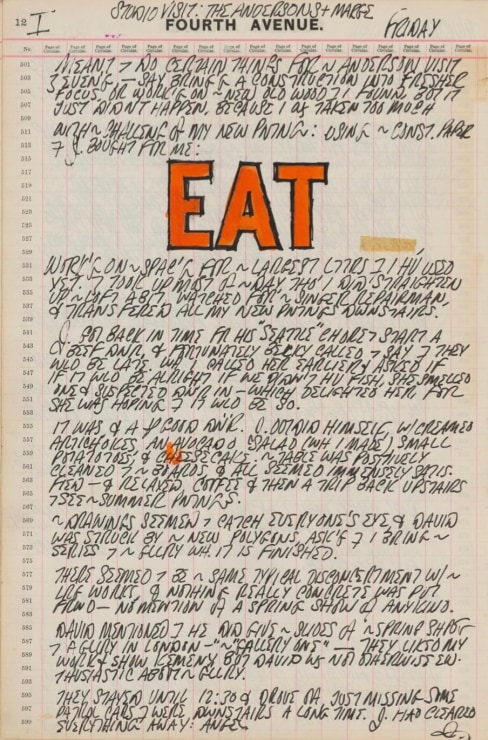 STUDIO VISIT: THE ANDERSONS + MARGE
12 I FOURTH AVENUE. FRIDAY
No. Page of Census Page of Census Page of Census Page of Census Page of Census Page of Census
501 MEANT 7 DO CERTAIN THINGS FOR ~ ANDERSON VISIT
503 EVENG — SAY BRING'G A CONSTRUCTION INTO FRESHER
505 FOCUS, OR WORK'G ON ~ NEW OLD WOOD I FOUND. BUT IT
507 JUST DIDN'T HAPPEN, BECAUSE I TAKEN TOO MUCH
509
511 WITH ~ CHALLENG OF MY NEW PNTNG: USING ~ CONST. PAPER
513 7 J. BOUGHT FOR ME:
515
517
519
521
EAT
523
525
527
529
531 WORK'G ON ~ SPAC'G FOR ~ LARGEST LTTRS 7 I HV USED
533 YET. 7 TOOK UP MOST OF ~ DAY THO' I DID STRAIGHTEN
535 UP ~ LOFT A BIT, WATCHED FOR ~ SINGER REPAIRMAN,
537 & TRANSFERED ALL MY NEW PNTNGS DOWNSTAIRS.
539
541 J. GOT BACK IN TIME FR HIS "SEATTLE" CHORE 7 START A
543 BEEF DNR, & FORTUNATELY BECKY CALLED 7 SAY 7 THEY
545 WLD BE LATE. CALLED HER EARLIER 7 ASKED IF
547 IT WLD BE ALRIGHT IF WE DIDN'T HV FISH, SHE SMELLED
549 & SUSPECTED DNR IN — WHICH DELIGHTED HER, FOR
551 SHE WAS HOPING 7 IT WLD BE SO.
553
555 IT WAS & A GOOD DNR. J. OUTDID HIMSELF, W/CREAMED
557 ARTICHOKES, AN AVOCADO SALAD (WH I MADE) SMALL
559 POTATOES, & CHEESECAKE. ~ TABLE WAS POSITIVELY
561 CLEANED 7 ~ BOARDS & ALL SEEMED IMMENSELY SATIS-
563 FIED — & RELAXED. COFFEE & THEN A TRIP BACK UPSTAIRS
565 7 SEE ~ SUMMER PNTNGS.
567
569 ~ DRAWINGS SEEMED 7 CATCH EVERYONE'S EYE, & DAVID
571 WAS STRUCK BY ~ NEW POLYGONS, ASK'G 7 I BRING ~
573 SERIES 7 ~ GLLRY WH. IT IS FINISHED.
575
577 THERE SEEMED 7 BE ~ SAME TYPICAL DISCONCERTMENT W/ ~
579 LRG WORKS, & NOTHING REALLY CONCRETE WAS PUT
581 FRWD — NO MENTION OF A SPRING SHOW OF ANY KIND.
583
585 DAVID MENTIONED 7 HE DID GIVE ~ SLIDES OF ~ SPRING SHOW
587 7 A GLLRY IN LONDON — "~ GALLERY ONE" — THEY LIKED MY
589 WORK & SHOW KEMENY, BUT DAVID WS NOT OTHERWISE EN-
591 THUSIASTIC ABOUT ~ GLLRY.
593
595 THEY STAYED UNTIL 12:30 & DROVE OFF, JUST MISSING SOME
597 PATROL CARS 7 WERE DOWNSTAIRS A LONG TIME. J. HAD CLEARED
599 EVERYTHING AWAY: ANGEL